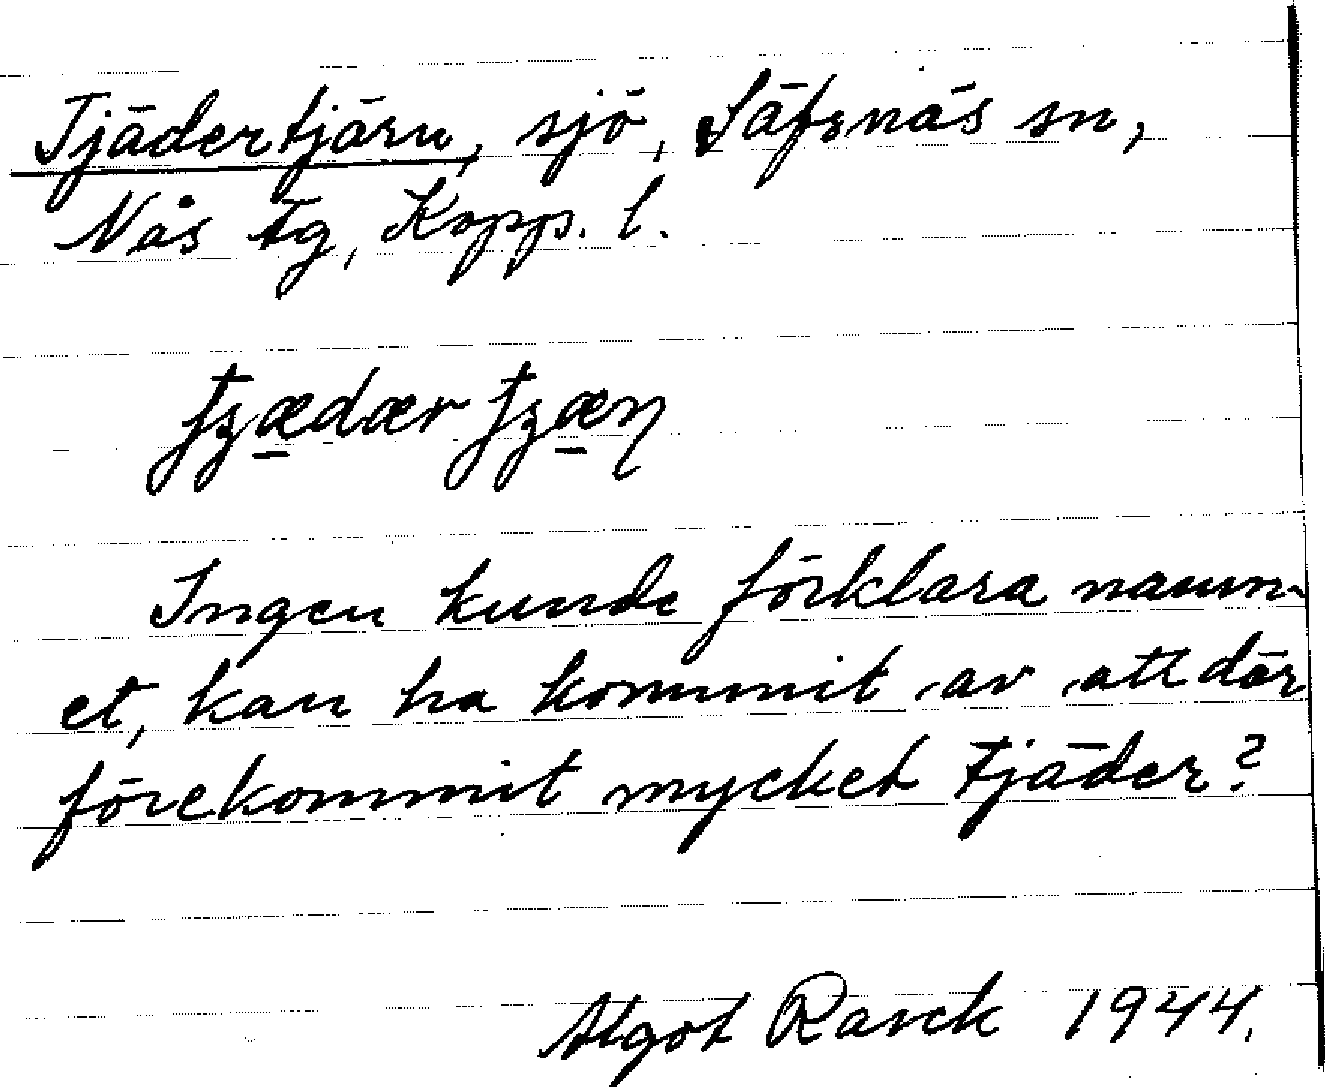 Tjädertjärn, sjö, Säfsnäs sn,
Nås tg, Kopp. l.
Ingen kunde förklara namn-
et, kan ha kommit av att där
förekommit mycket tjäder?
Algot Rarck 1944.